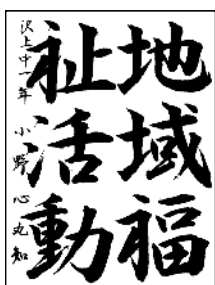 地域福
祉活動
沢上中一年 小野心丸知